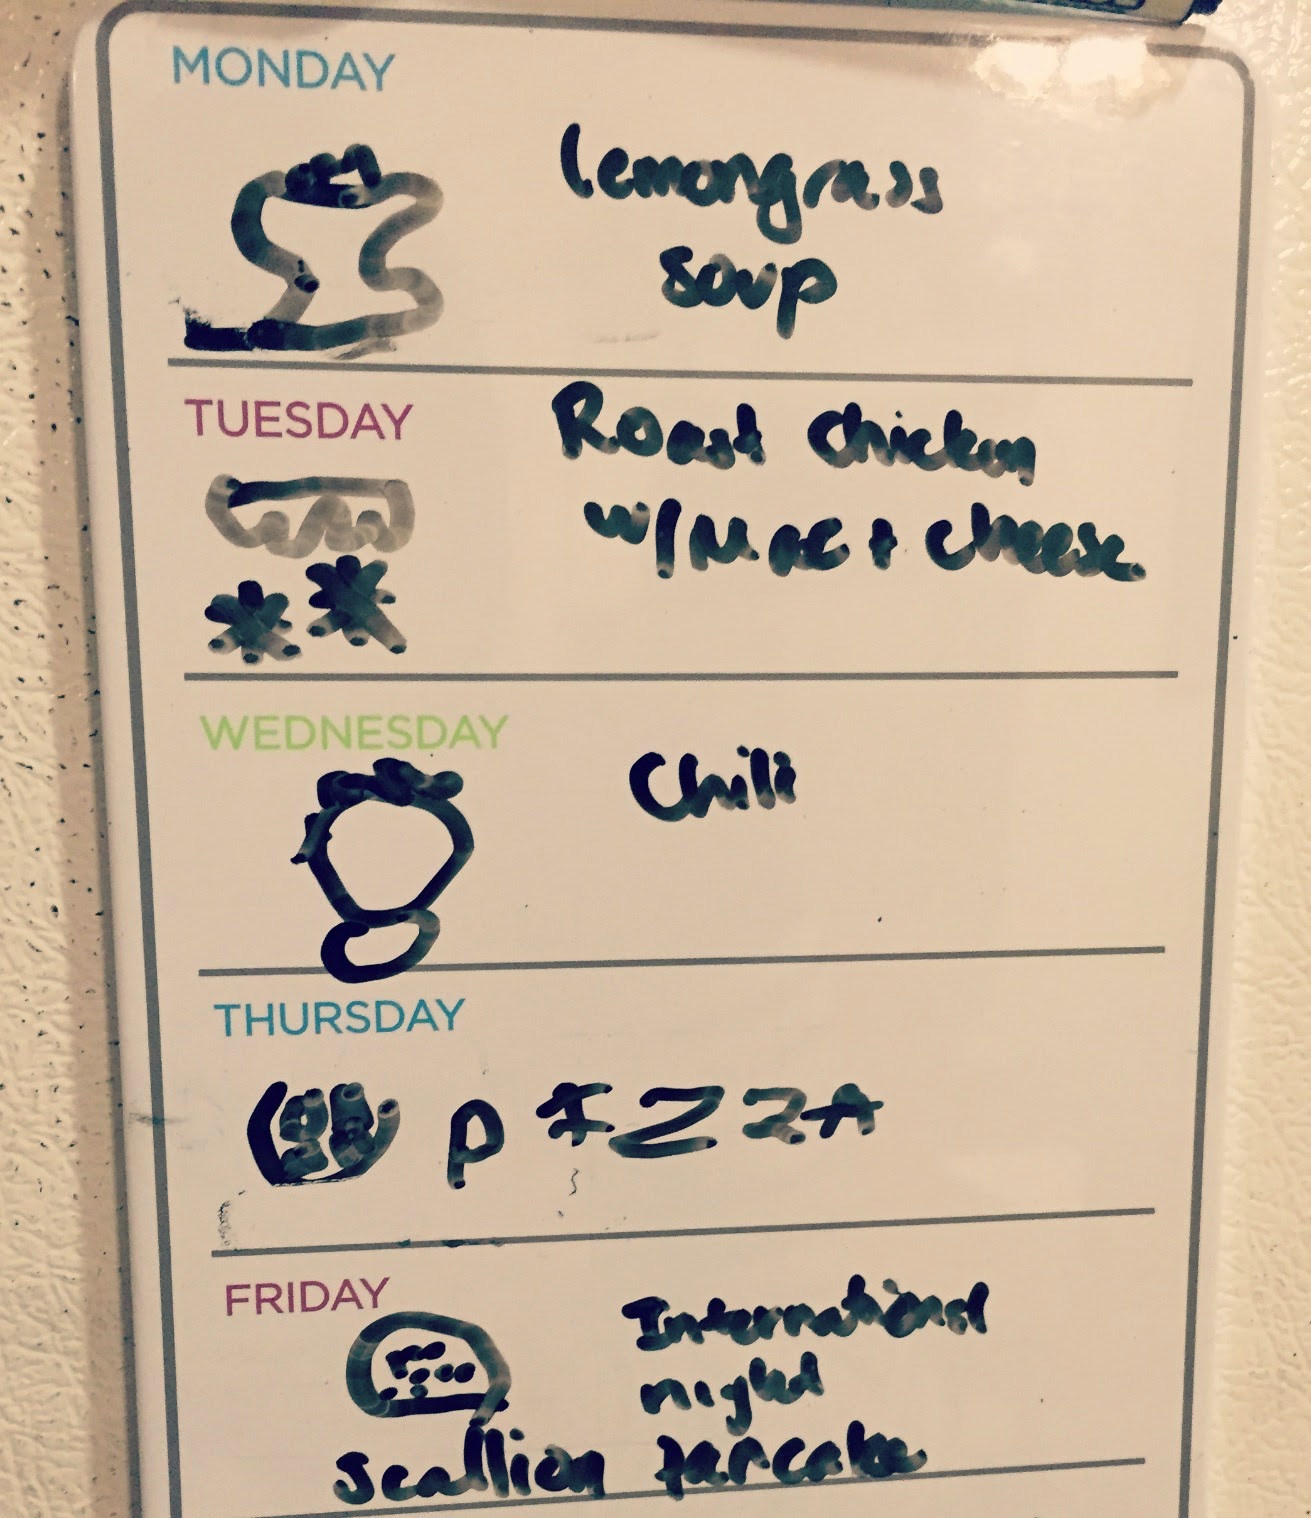 MONDAY
Lemongrass
Soup
TUESDAY
Roast Chicken
w/ Mac + Cheese
WEDNESDAY
Chili
THURSDAY
PIZZA
FRIDAY
International
night
Scallion pancake